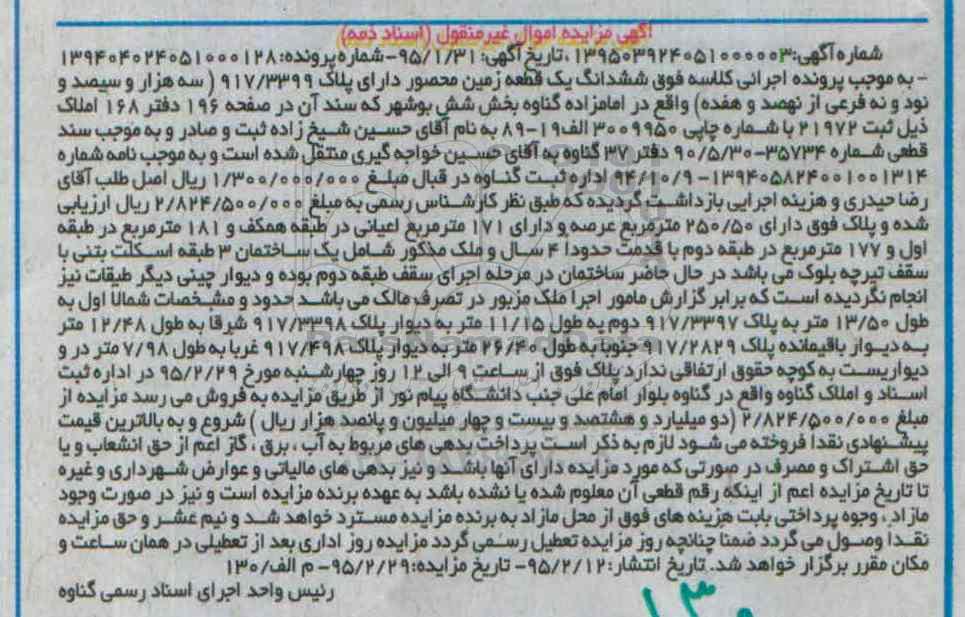 آگهی مزایده اموال غیرمنقول (اسناد ذمه)
شماره آگهی:۱۳۹۵۰۳۹۲۴۰۵۱۰۰۰۰۰۳، تاریخ آگهی: ۹۵/۱/۳۱- شماره پرونده: ۱۳۹۴۰۴۰۲۴۰۵۱۰۰۰۱۲۸
- به موجب پرونده اجرائی کلاسه فوق ششدانگ یک قطعه زمین محصور دارای پلاک ۹۱۷/۳۳۹۹ ( سه هزار و سیصد و
نود و نه فرعی از نهصد و هفده) واقع در امامزاده گناوه بخش شش بوشهر که سند آن در صفحه ۱۹۶ دفتر ۱۶۸ املاک
ذیل ثبت ۲۱۹۷۲ با شماره چاپی ۳۰۰۹۹۵۰ الف۱۹-۸۹ به نام آقای حسین شیخ زاده ثبت و صادر و به موجب سند
قطعی شماره ۳۵۷۳۴-۹۰/۵/۳۰ دفتر ۳۷ گناوه به آقای حسین خواجه گیری منتقل شده است و به موجب نامه شماره
۱۳۹۴۰۵۸۲۴۰۰۱۰۰۱۳۱۴ -۹۴/۱۰/۹ اداره ثبت گناوه در قبال مبلغ ۱/۳۰۰/۰۰۰/۰۰۰ ریال اصل طلب آقای
رضا حیدری و هزینه اجرایی بازداشت گردیده که طبق نظر کارشناس رسمی به مبلغ ۲/۸۲۴/۵۰۰/۰۰۰ ریال ارزیابی
شده و پلاک فوق دارای ۲۵۰/۵۰ مترمربع عرصه و دارای ۱۷۱ مترمربع اعیانی در طبقه همکف و ۱۸۱ مترمربع در طبقه
اول و ۱۷۷ مترمربع در طبقه دوم با قدمت حدودا ۴ سال و ملک مذکور شامل یک ساختمان ۳ طبقه اسکلت بتنی با
سقف تیرچه بلوک می باشد در حال حاضر ساختمان در مرحله اجرای سقف طبقه دوم بوده و دیوار چینی دیگر طبقات نیز
انجام نگردیده است که برابر گزارش مامور اجرا ملک مزبور در تصرف مالک می باشد حدود و مشخصات شمالا اول به
طول ۱۳/۵۰ متر به پلاک ۹۱۷/۳۳۹۷ دوم به طول ۱۱/۱۵ متر به دیوار پلاک ۹۱۷/۳۳۹۸ شرقا به طول ۱۲/۴۸ متر
به دیوار باقیمانده پلاک ۹۱۷/۲۸۲۹ جنوبا به طول ۲۶/۴۰ متر به دیوار پلاک ۹۱۷/۴۹۸ غربا به طول ۷/۹۸ متر در و
دیواریست به کوچه حقوق ارتفاقی ندارد پلاک فوق از ساعت ۹ الی ۱۲ روز چهارشنبه مورخ ۹۵/۲/۲۹ در اداره ثبت
اسناد و املاک گناوه واقع در گناوه بلوار امام علی جنب دانشگاه پیام نور از طریق مزایده به فروش می رسد مزایده از
مبلغ ۲/۸۲۴/۵۰۰/۰۰۰ (دو میلیارد و هشتصد و بیست و چهار میلیون و پانصد هزار ریال ) شروع و به بالاترین قیمت
پیشنهادی نقدا فروخته می شود لازم به ذکر است پرداخت بدهی های مربوط به آب ، برق ، گاز اعم از حق انشعاب و یا
حق اشتراک و مصرف در صورتی که مورد مزایده دارای آنها باشد و نیز بدهی های مالیاتی و عوارض شهرداری و غیره
تا تاریخ مزایده اعم از اینکه رقم قطعی آن معلوم شده یا نشده باشد به عهده برنده مزایده است و نیز در صورت وجود
مازاد ، وجوه پرداختی بابت هزینه های فوق از محل مازاد به برنده مزایده مسترد خواهد شد و نیم عشر و حق مزایده
نقدا وصول می گردد ضمنا چنانچه روز مزایده تعطیل رسمی گردد مزایده روز اداری بعد از تعطیلی در همان ساعت و
مکان مقرر برگزار خواهد شد. تاریخ انتشار: ۹۵/۲/۱۲- تاریخ مزایده: ۹۵/۲/۲۹- م الف/۱۳۰
رئیس واحد اجرای اسناد رسمی گناوه